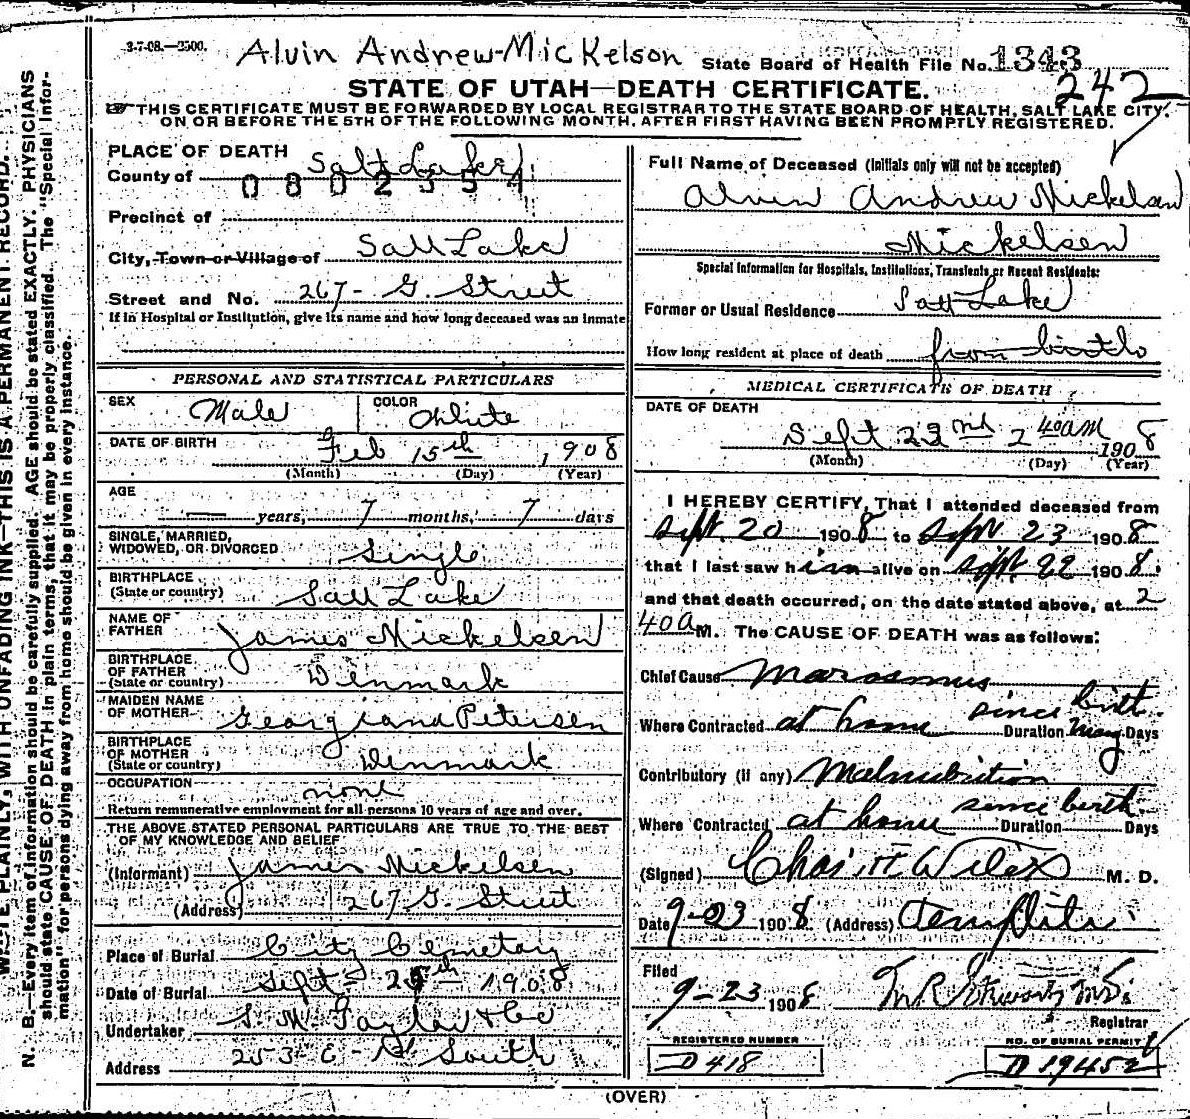 3-7-08.—3500.
Alvin Andrew Mickelson
State Board of Health File No. 1343
242
STATE OF UTAH—DEATH CERTIFICATE.
THIS CERTIFICATE MUST BE FORWARDED BY LOCAL REGISTRAR TO THE STATE BOARD OF HEALTH, SALT LAKE CITY,
ON OR BEFORE THE 5TH OF THE FOLLOWING MONTH, AFTER FIRST HAVING BEEN PROMPTLY REGISTERED.
N. B.—Every item of information should be carefully supplied. AGE should be stated EXACTLY. PHYSICIANS
should state CAUSE OF DEATH in plain terms, that it may be properly classified. The "Special Infor-
mation" for persons dying away from home should be given in every instance.
WRITE PLAINLY, WITH UNFADING INK—THIS IS A PERMANENT RECORD.
PLACE OF DEATH
County of Salt Lake
Precinct of
City, Town or Village of Salt Lake
Street and No. 267- G. Street
If in Hospital or Institution, give its name and how long deceased was an inmate
PERSONAL AND STATISTICAL PARTICULARS
SEX Male COLOR White
DATE OF BIRTH
Feb 15th, 1908
(Month) (Day) (Year)
AGE
— years, 7 months, 7 days
SINGLE, MARRIED,
WIDOWED, OR DIVORCED Single
BIRTHPLACE
(State or country) Salt Lake
NAME OF
FATHER James Mickelsen
BIRTHPLACE
OF FATHER
(State or country) Denmark
MAIDEN NAME
OF MOTHER Georgiana Petersen
BIRTHPLACE
OF MOTHER
(State or country) Denmark
OCCUPATION none
Return remunerative employment for all persons 10 years of age and over.
THE ABOVE STATED PERSONAL PARTICULARS ARE TRUE TO THE BEST
OF MY KNOWLEDGE AND BELIEF
(Informant) James Mickelsen
(Address) 267 G. Street
Place of Burial City Cemetary
Date of Burial Sept 1908
Undertaker S. M. Taylor & Co
Address 253 E - South
Full Name of Deceased (Initials only will not be accepted)
Alvin Andrew Mickelsen
Mickelsen
Special Information for Hospitals, Institutions, Transients or Recent Residents:
Former or Usual Residence Salt Lake
How long resident at place of death from birth
MEDICAL CERTIFICATE OF DEATH
DATE OF DEATH
Sept 22nd 2 40am 1908
(Month) (Day) (Year)
I HEREBY CERTIFY, That I attended deceased from
Sept. 20 1908 to Sept 23 1908
that I last saw him alive on Sept. 22 1908.
and that death occurred, on the date stated above, at 2
40 a M. The CAUSE OF DEATH was as follows:
Chief Cause Marasmus
since birth
Where Contracted at home Duration Many Days
Contributory (if any) Malnutrition
since birth
Where Contracted at home Duration Days
(Signed) Chas H Wilcox M. D.
Date 9-23 1908 (Address)
Filed
9-23 1908
Registrar
REGISTERED NUMBER
D 418
NO. OF BURIAL PERMIT
D 19452
(OVER)